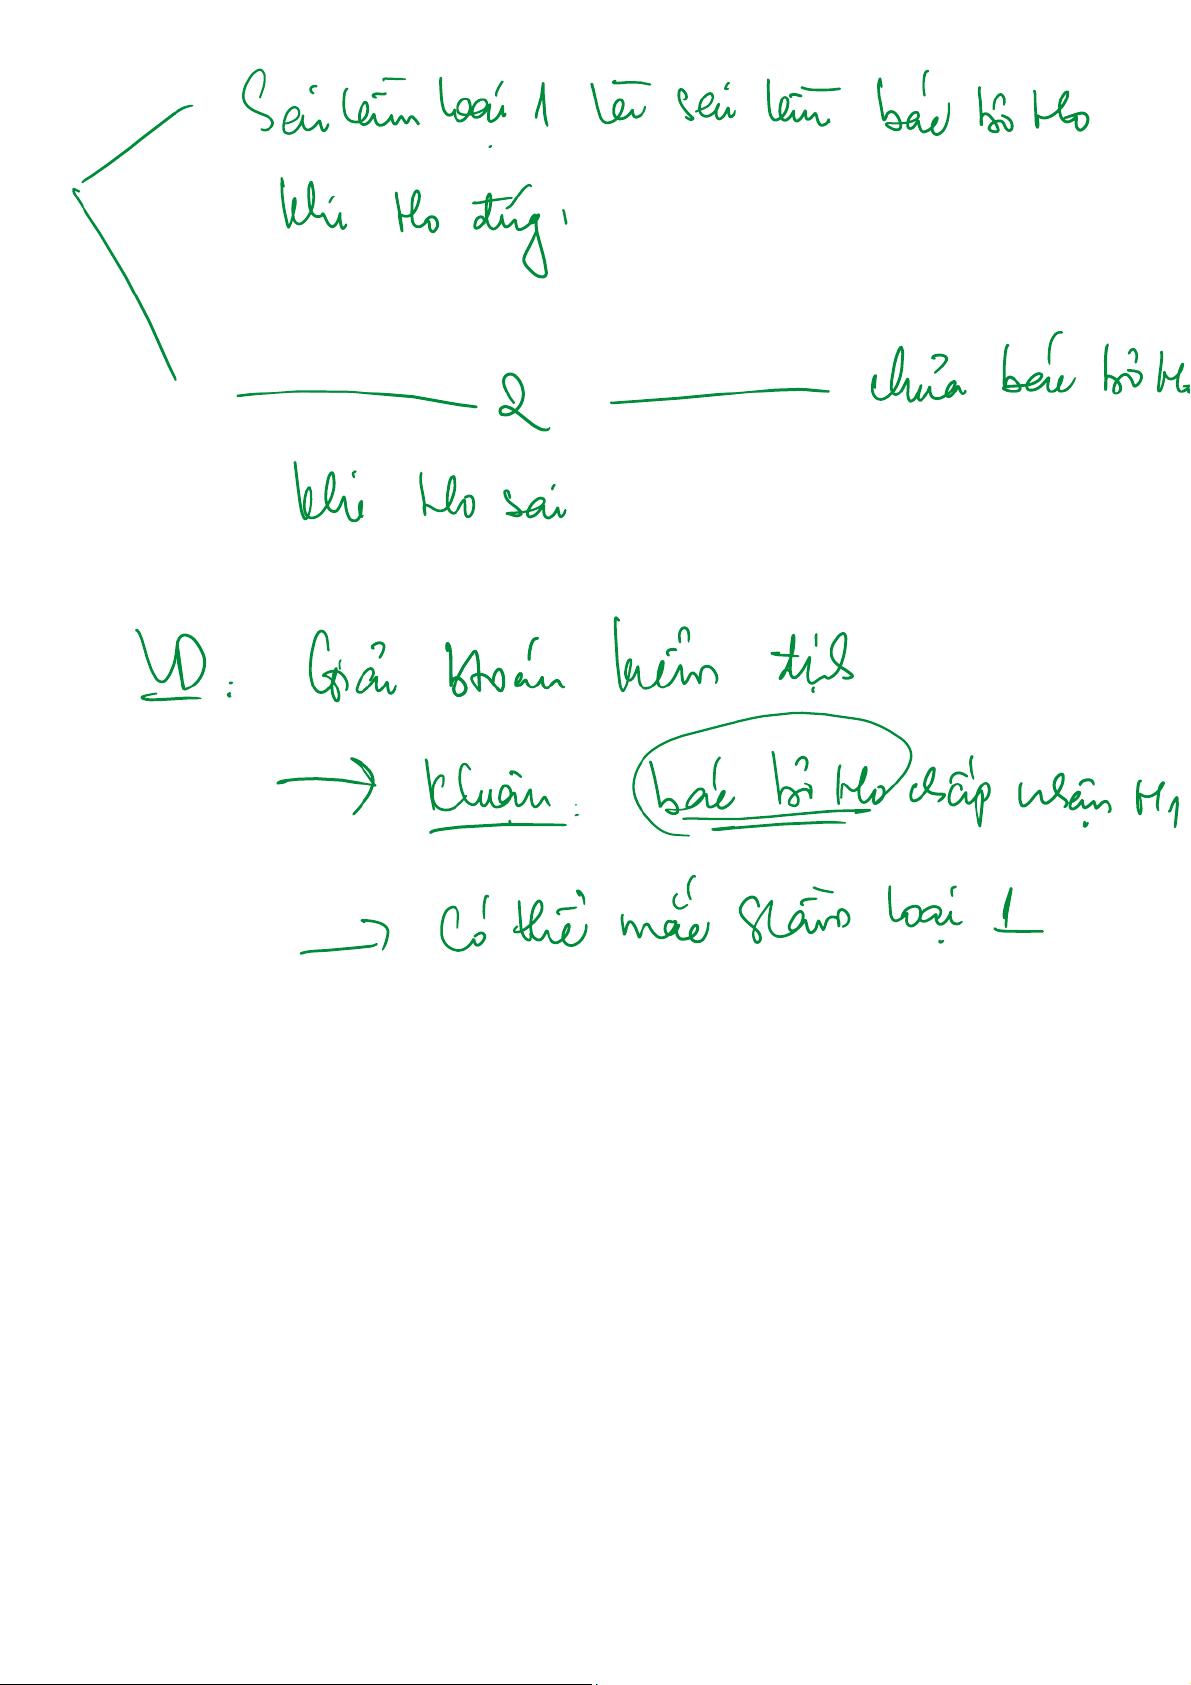 Sai lầm loại 1 là sai lầm bác bỏ Ho
khi Ho đúng.
2 chưa bác bỏ Ho
khi Ho sai
VD: Giải bài toán kiểm định
→ Kluận: bác bỏ Ho chấp nhận H1
→ Có thể mắc slầm loại 1